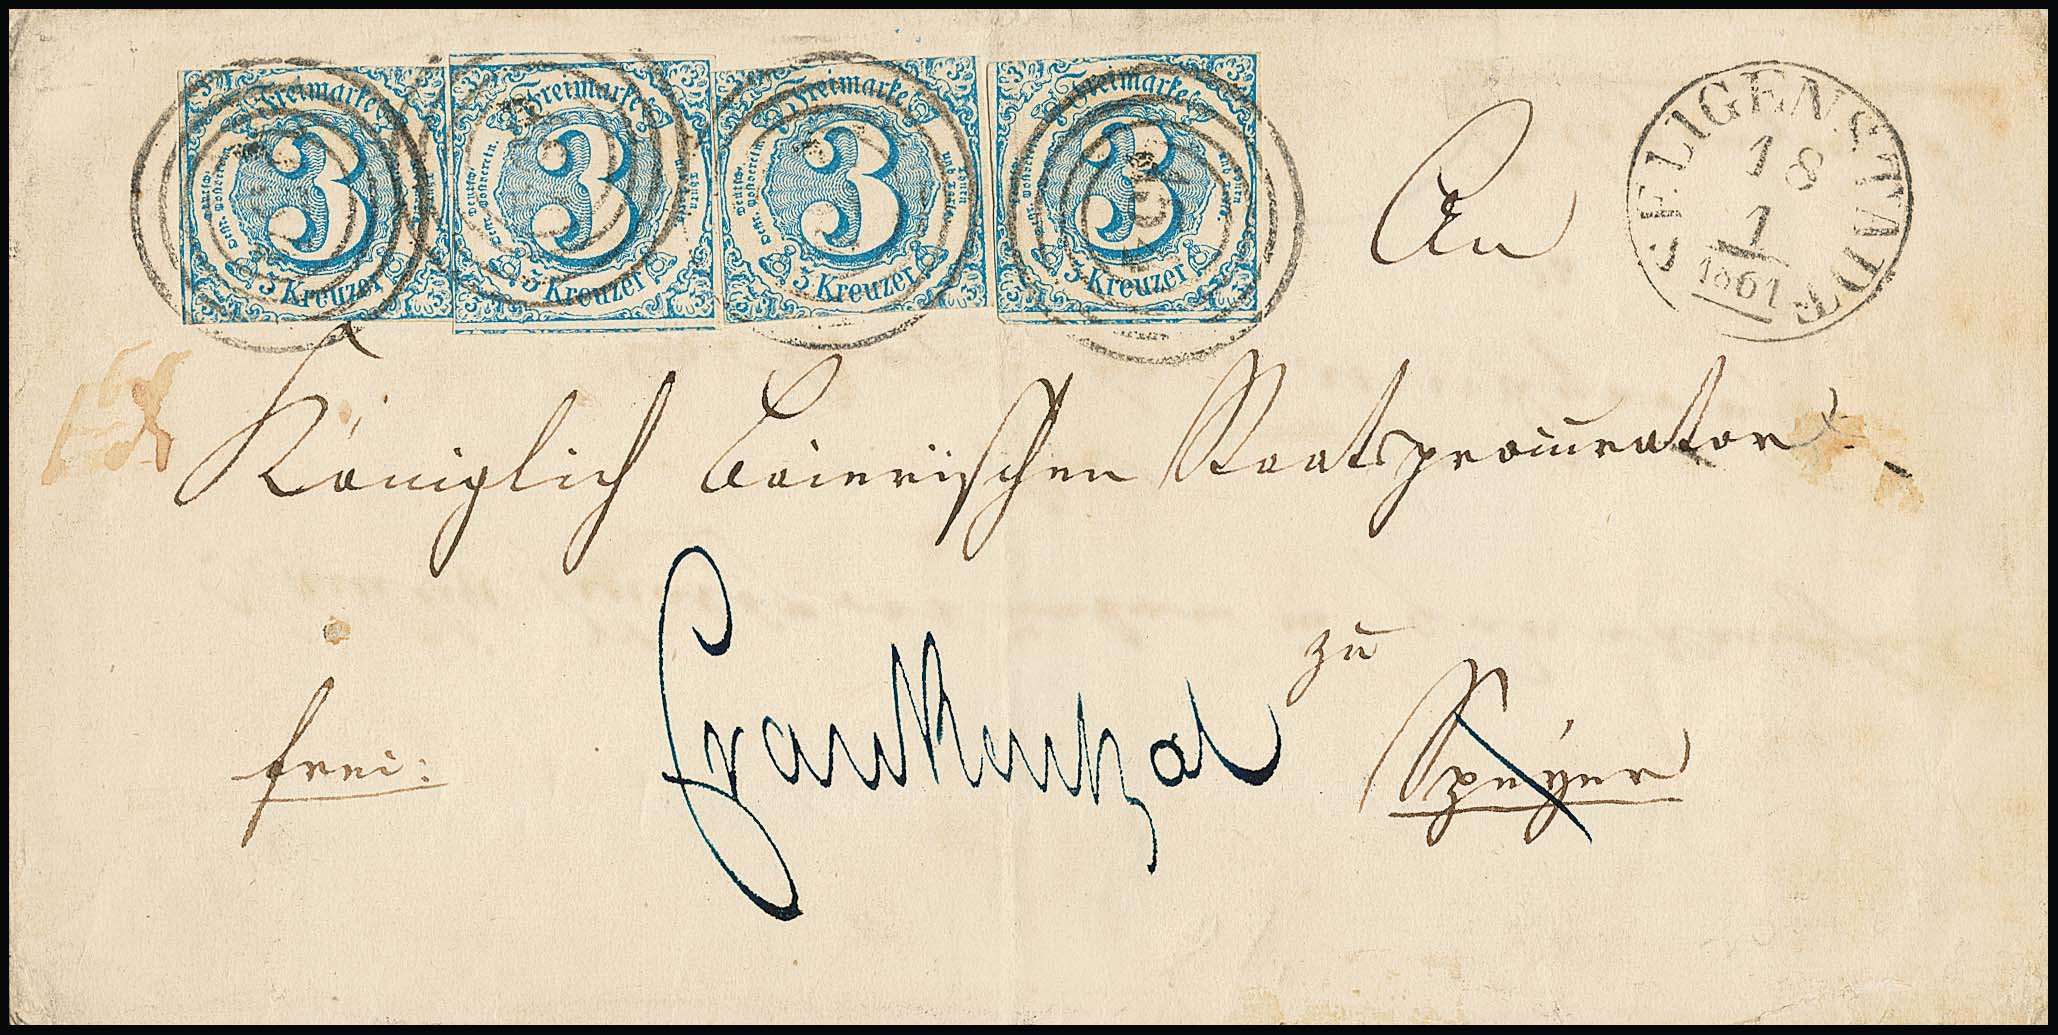 Freimarke
3
3 Kreuzer
Freimarke
3
Deutsch. Östr. Postverein.
3 Kreuzer
Freimarke
3
3 Kreuzer
Freimarke
3
3 Kreuzer
SELIGENSTADT
18
1
1861
An
Königlich baierischen Staatsprocurator
zu
frei:
Frankenthal
Speyer